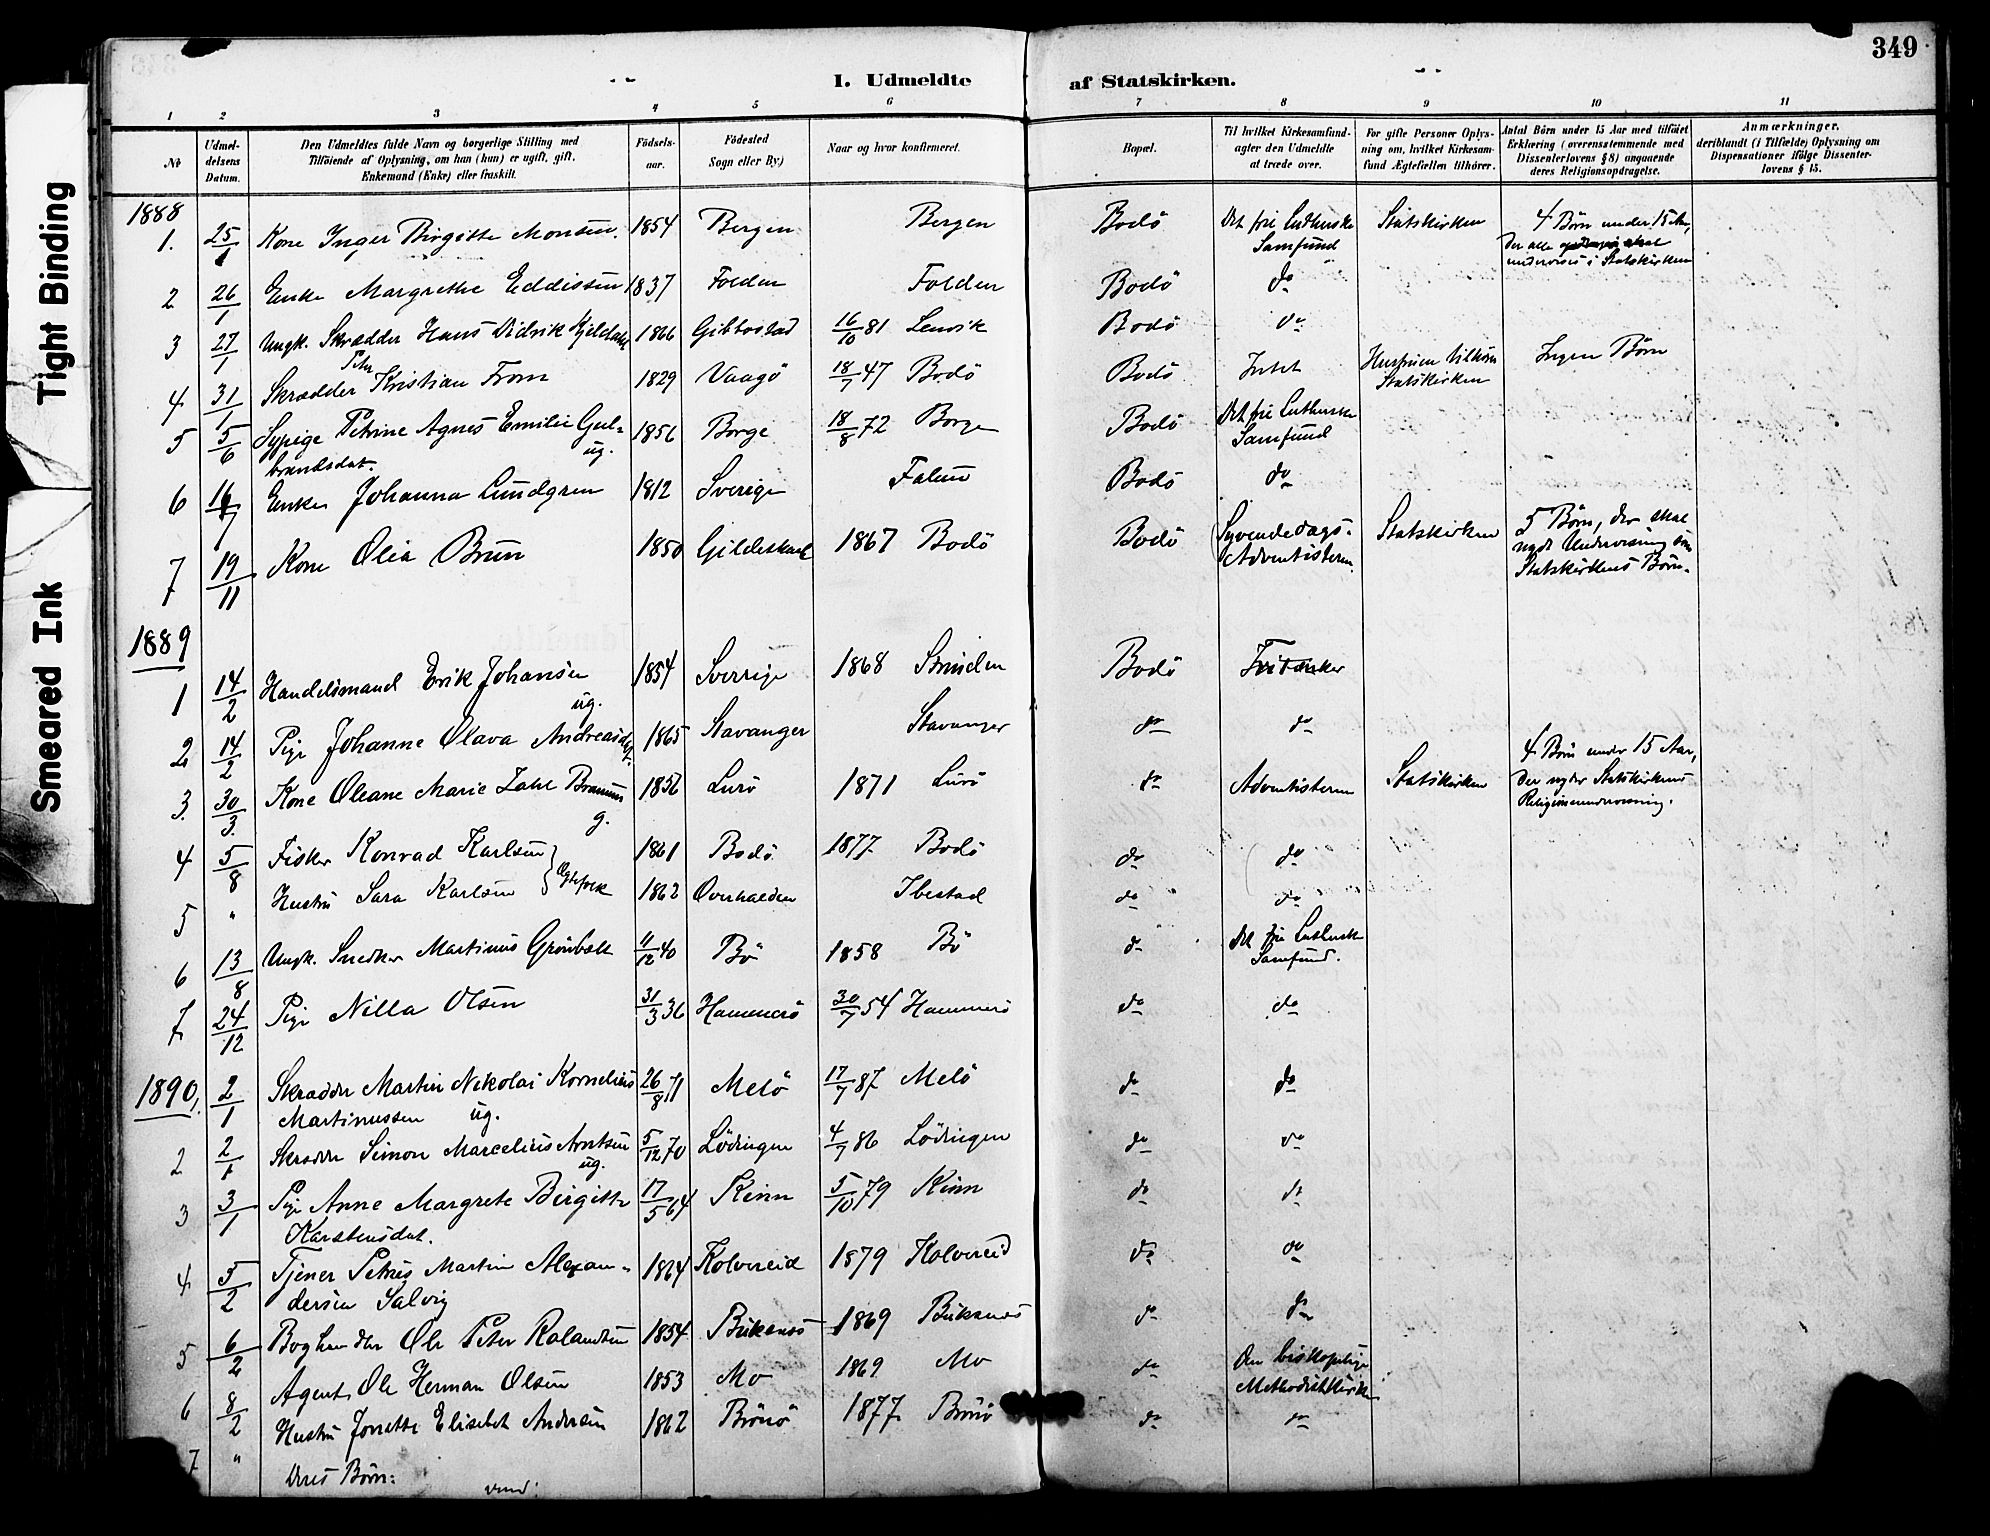 349
I. Udmeldte af Statskirken.
1 2 3 4 5 6 7 8 9 10 11
No
Udmeldelsens Datum.
Den Udmeldtes fulde Navn og borgerlige Stilling med
Tilføiende af Oplysning, om han (hun) er ugift, gift,
Enkemand (Enke) eller fraskilt.
Fødselsaar.
Fødested
Sogn eller By)
Naar og hvor konfirmeret.
Bopæl.
Til hvilket Kirkesamfund
agter den Udmeldte
at træde over.
For gifte Personer Oplys-
ning om, hvilket Kirkesam-
fund Ægtefællen tilhører.
Antal Børn under 15 Aar med tilføiet
Erklæring (overensstemmende med
Dissenterlovens § 8) angaaende
deres Religionsopdragelse.
Anmærkninger,
deriblandt (i Tilfælde) Oplysning om
Dispensationer ifølge Dissenter-
lovens § 15.
1888
1. 25/1 Kone Inger Birgitte Monsen. 1854 Bergen Bergen Bodö Det frie Lutherske Samfund Statskirken 4 Børn under 15 Aar, der alle skal undervises i Statskirken
2 26/1 Enke Margrethe Eddissen 1837 Folden Folden Bodö do
3 27/1 Ungk. Skrædder Hans Didrik 1866 Gibbostad 16/10 81 Lenvik Bodö do
4 31/1 Skrædder Peter Kristian From 1829 Vaagö 18/7 47 Bodö Bodö Intet Hustruen tilhører Statskirken Ingen Børn
5 5/6 Sypige Petrine Agnes Emilie Gul-
brandsdat. ug. 1856 Borge 18/8 72 Borge Bodö Det frie Lutherske Samfund
6 Enke Johanna Lundgren 1812 Sverige Falun Bodö do
7 19/11 Kone Olia Brun 1850 Gildeskaal 1867 Bodö Bodö Syvendedags-Adventisterne. Statskirken 5 Børn, der skal nyde Undervisning som Statskirkens Børn.
1889
1 14/2 Handelsmand Erik Johansen ug. 1854 Sverrige 1868 Bodö Fritænker
2 14/2 Pige Johanne Olava Andreasdat. 1865 Stavanger Stavanger do do
3. 30/3. Kone Oleane Marie Zahl g. 1856 Lurö 1871 Lurö do Adventisterne Statskirken 4 Børn under 15 Aar, der nyder Statskirkens Religionsundervisning.
4 5/8 Fisker Konrad Karlsen 1861 Bodö 1877 Bodö do do
Ægtefolk
5 " Hustru Sara Karlsen 1862 Overhalden Ibestad do do
6 13/8 Ungk. Snedker Martinus Grönbek 11/12 40 Bö 1858 Bö do Det frie Luthersk Samfund.
7 24/12 Pige Nilla Olsen 31/3 36 Hammerö 30/7 54 Hammerö do do
1890
1. 2/1 Skrædder Martin Nikolai Kornelius
Martinussen ug. 26/8 71 Melö 17/7 87 Melö do do
2 2/1 Skrædder Simon Marcelius Arntsen ug. 5/12 70 Lödingen 4/7 86 Lödingen do do
3 3/1 Pige Anne Margrete Birgitte
Karstensdat. 17/5 64 Kinn 5/10 79 Kinn do do
4 5/2 Tjener Petrus Martin Alexan-
dersen Salvig 1864 Kolvereid 1879 Kolvereid do do
5 6/2 Boghandler Ole Peter Rolandsen 1854 Buksnes 1869 Buksnes do do
6 8/2 Agent Ole Herman Olsen 1853 Mo 1869 Mo do Den biskopelige Methodistkirke
7 " Hustru Jonette Elisabet Andersen 1862 Brönö 1877 Brönö do do
Deres Børn:
vend:
Tight Binding
Smeared Ink